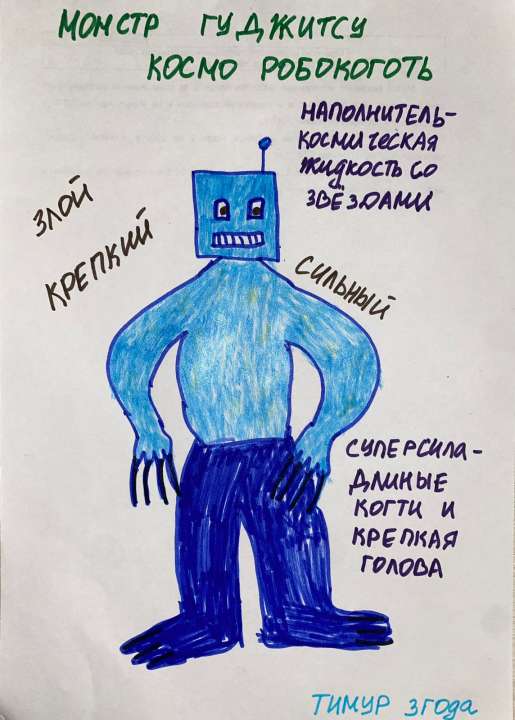 МОНСТР ГУДЖИТСУ
КОСМО РОБОКОГОТЬ
НАПОЛНИТЕЛЬ-
КОСМИЧЕСКАЯ
ЖИДКОСТЬ СО
ЗВЁЗДАМИ
ЗЛОЙ
КРЕПКИЙ
СИЛЬНЫЙ
СУПЕРСИЛА-
ДЛИНЫЕ
КОГТИ И
КРЕПКАЯ
ГОЛОВА
ТИМУР 3 года